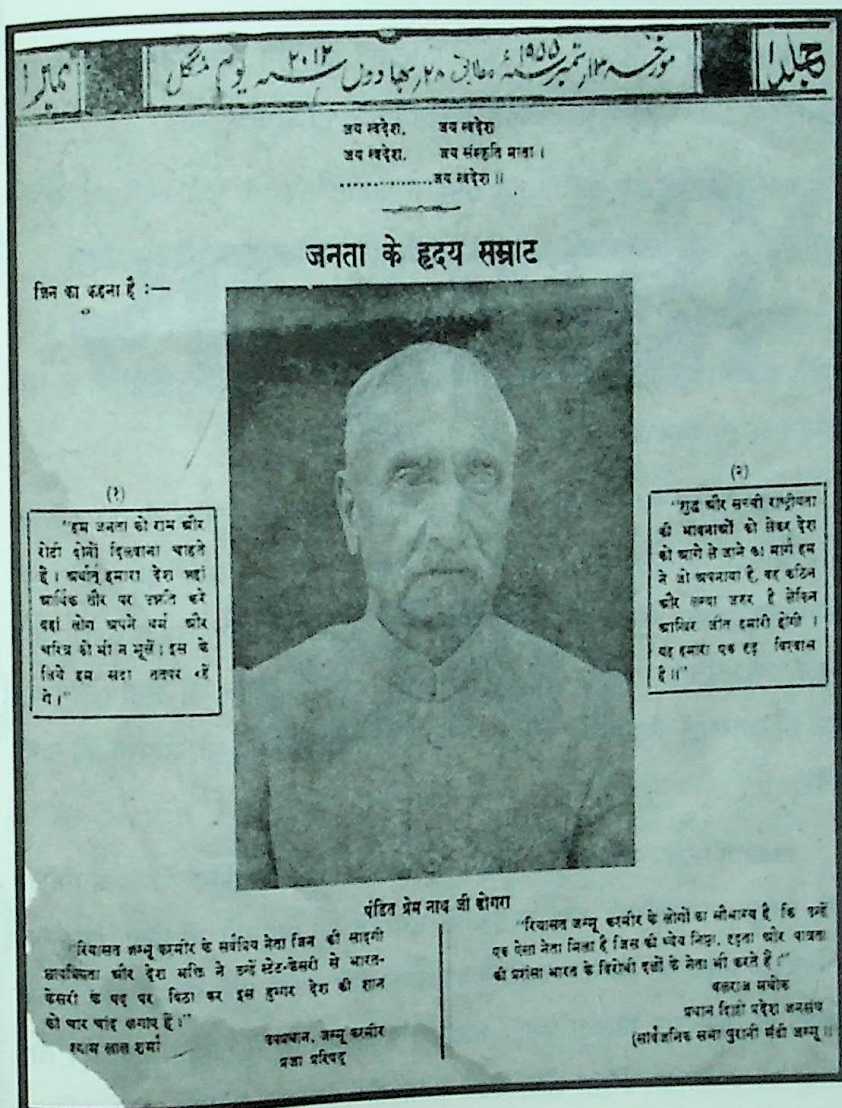 جلد ۱
مورخہ ۱۳ ستمبر ۱۹۵۵ء مطابق ۲۸ بھادوں ۲۰۱۲ یوم منگل
نمبر ۱
जय स्वदेश, जय स्वदेश
जय स्वदेश, जय संस्कृति माता ।
...............जय स्वदेश ॥
जनता के हृदय सम्राट
जिन का कहना है :—
(१)
"हम जनता को राम और
रोटी दोनों दिलवाना चाहते
हैं । अर्थात् हमारा देश जहां
आर्थिक तौर पर उन्नति करे
वहां लोग अपने धर्म और
चरित्र को भी न भूलें । इस के
लिये हम सदा तत्पर रहें
गे ।"
(२)
"शुद्ध और सच्ची राष्ट्रीयता
की भावनाओं को लेकर देश
को आगे ले जाने का मार्ग हम
ने जो अपनाया है, वह कठिन
और लम्बा जरूर है लेकिन
आखिर जीत हमारी होगी ।
यह हमारा एक दृढ़ विश्वास
है ॥"
पंडित प्रेम नाथ जी डोगरा
"रियासत जम्मू कश्मीर के सर्वप्रिय नेता जिन की सादगी
और देश भक्ति ने उन्हें स्टेट-केसरी से भारत-
केसरी के पद पर बिठा कर इस डुग्गर देश की शान
को चार चांद लगाये हैं ।"
श्याम लाल शर्मा
उपप्रधान, जम्मू कश्मीर
प्रजा परिषद्
"रियासत जम्मू कश्मीर के लोगों का सौभाग्य है, कि उन्हें
एक ऐसा नेता मिला है जिस की ध्येय निष्ठा, दृढ़ता और पात्रता
की प्रशंसा भारत के विरोधी दलों के नेता भी करते हैं ।"
बलराज मधोक
प्रधान दिल्ली प्रदेश जनसंघ
(सार्वजनिक सभा पुरानी मंडी जम्मू ॥